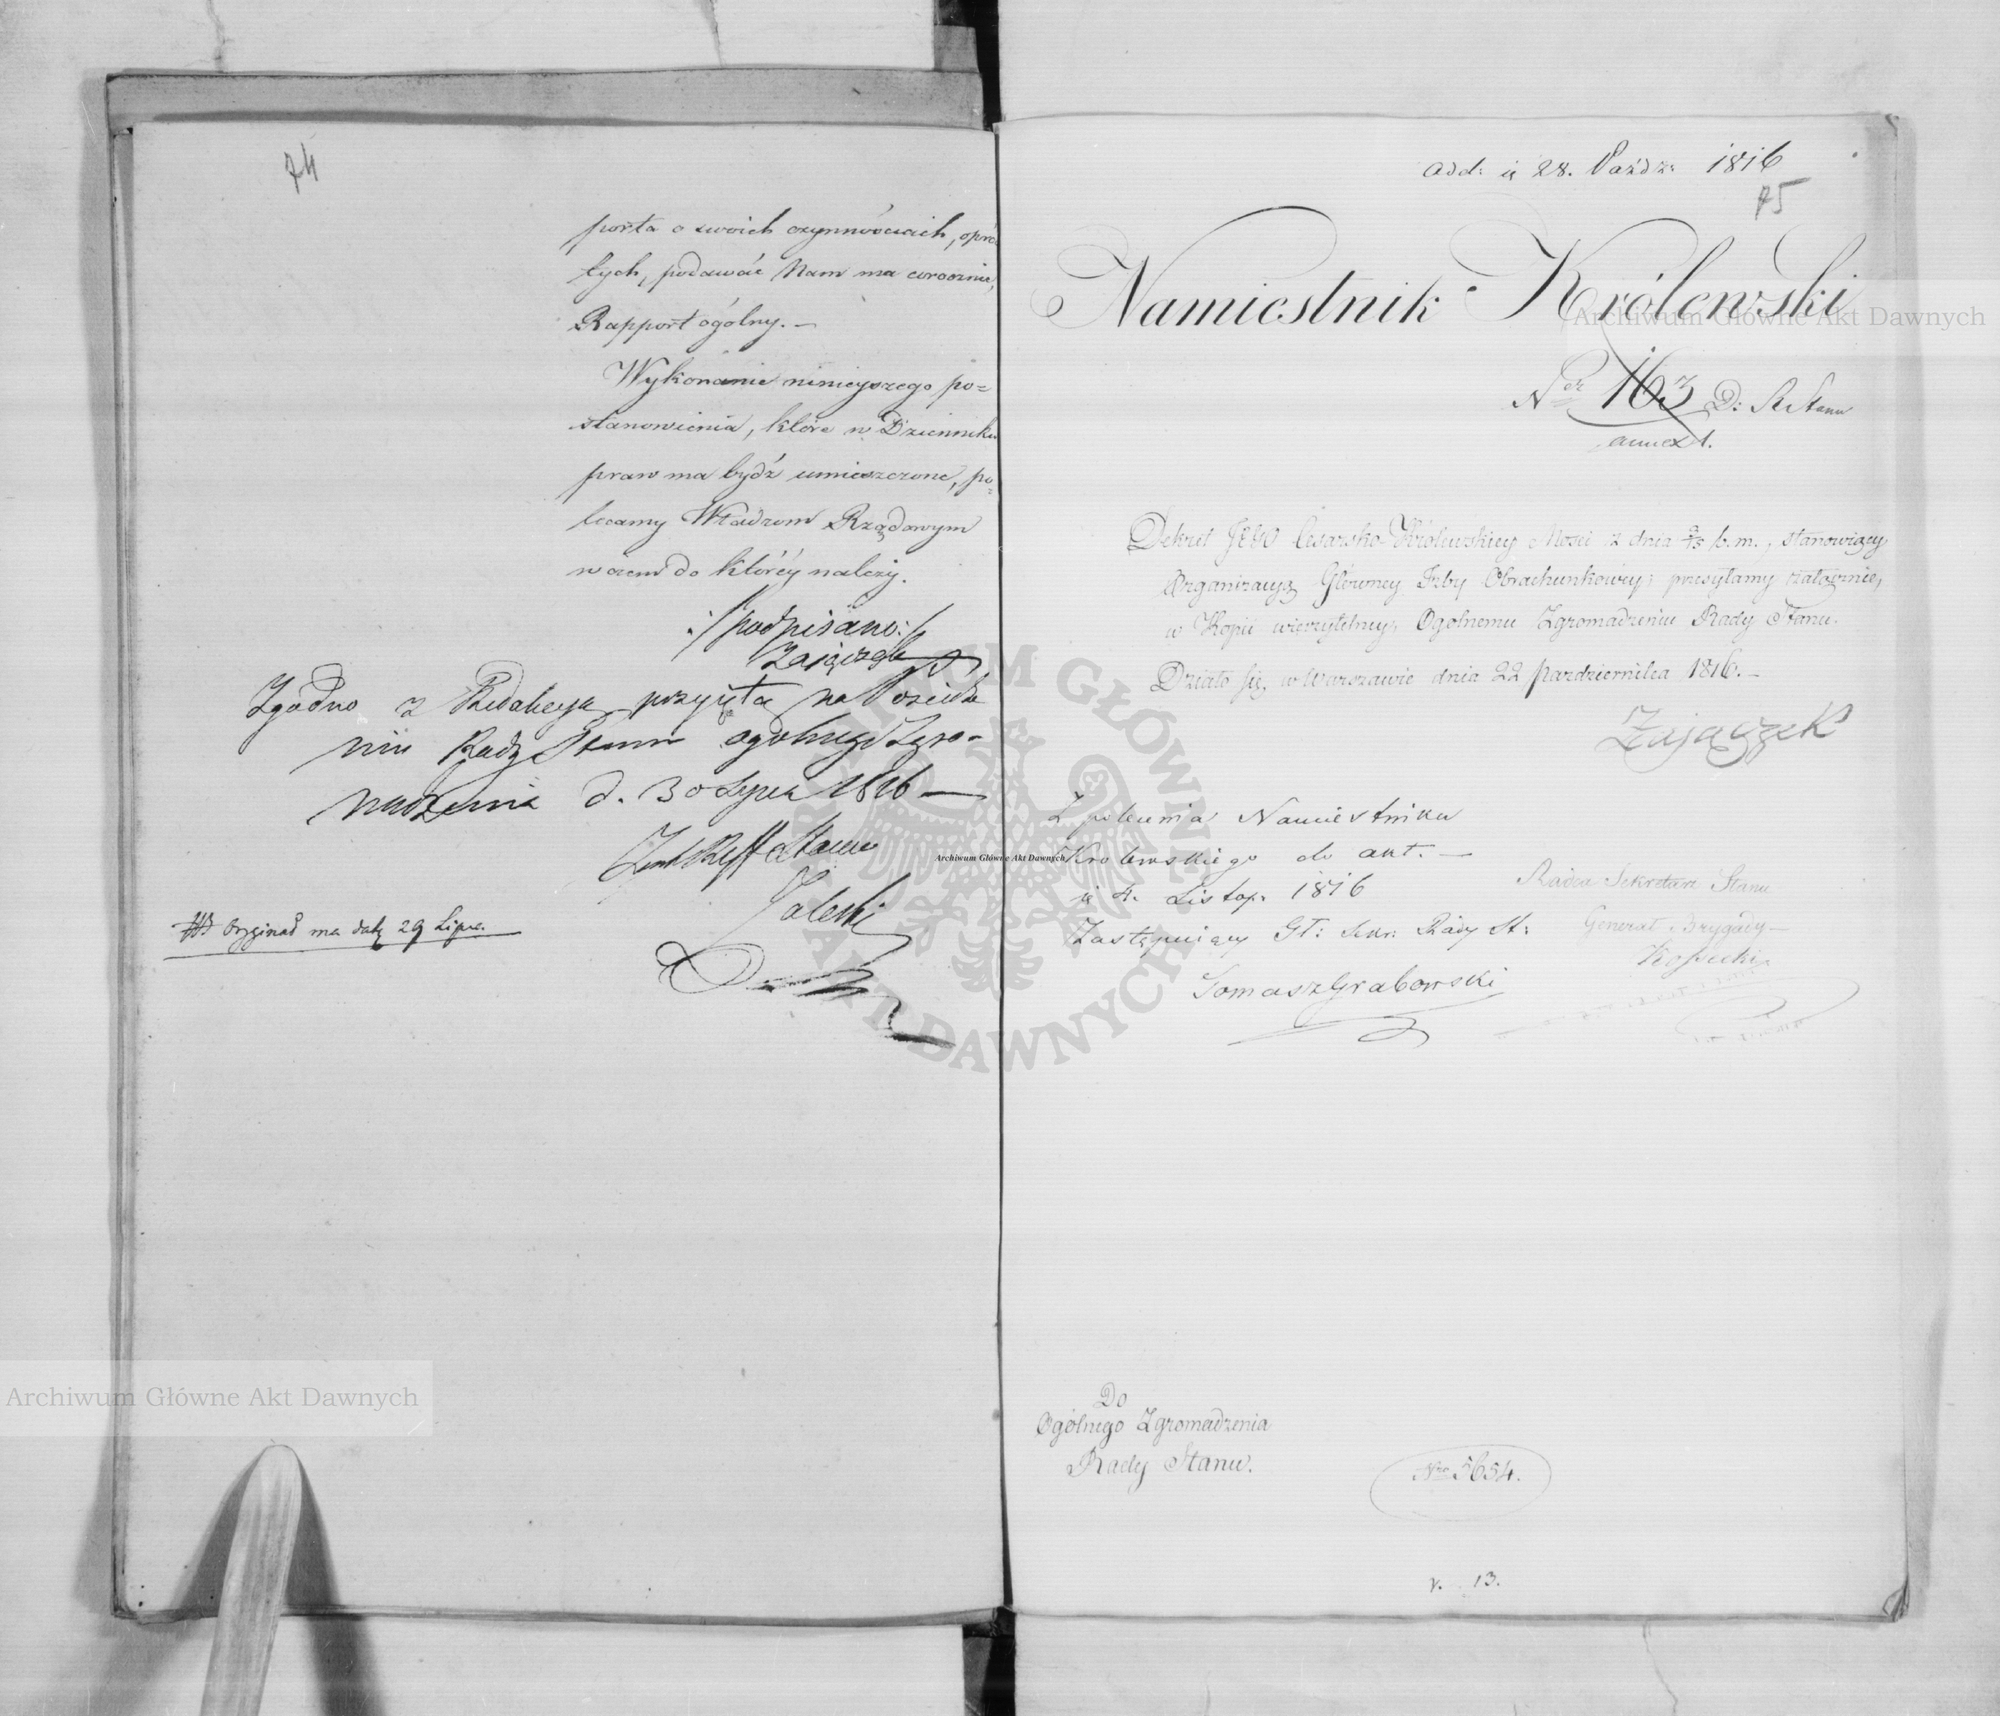 74
porta o swoich czynnościach, opró
tych, podawać Nam ma corocznie,
Rapport ogólny. —
Wykonanie ninieyszego po=
stanowienia, które w Dzienniku
praw ma bydź umieszczone, po=
lecamy Władzom Rządowym
w czem do któréy należy.
:/podpisano:/
Zaiączek
Zgodno z Redakcyą przyiętą na Posiedze
niu Rady Stanu ogólnego Zgro-
madzenia d. 30 Lipca 1816 —
Stanu
Zaleski
NB Oryginał ma datę 29 Lipca.
odd: d 28. Paźdz: 1816
75
Namiestnik Królewski
Ner 163 D: R Stanu
annex 1.
Dekret JEGO Cesarsko-Królewskiey Mości z dnia 3/15 b. m., stanowiący
Organizacyą Głównéy Izby Obrachunkowéy; przesyłamy załącznie,
w Kopii wierzytelney, Ogolnemu Zgromadzeniu Rady Stanu.
Działo się, w Warszawie dnia 22 Pazdziernika 1816. —
Zajączek
Z polecenia Namiestnika
Krolewskiego do akt. —
d 4. Listop. 1816
Zastępuiący Gł: Sekr: Rady St:
Tomasz Grabowski
Radca Sekretarz Stanu
Generał Brygady —
Kossecki
Do
Ogólnego Zgromadzenia
Rady Stanu.
Nro 5654.
v. 13.
Archiwum Główne Akt Dawnych
Archiwum Główne Akt Dawnych
Archiwum Główne Akt Dawnych
ARCHIWUM GŁÓWNE AKT DAWNYCH